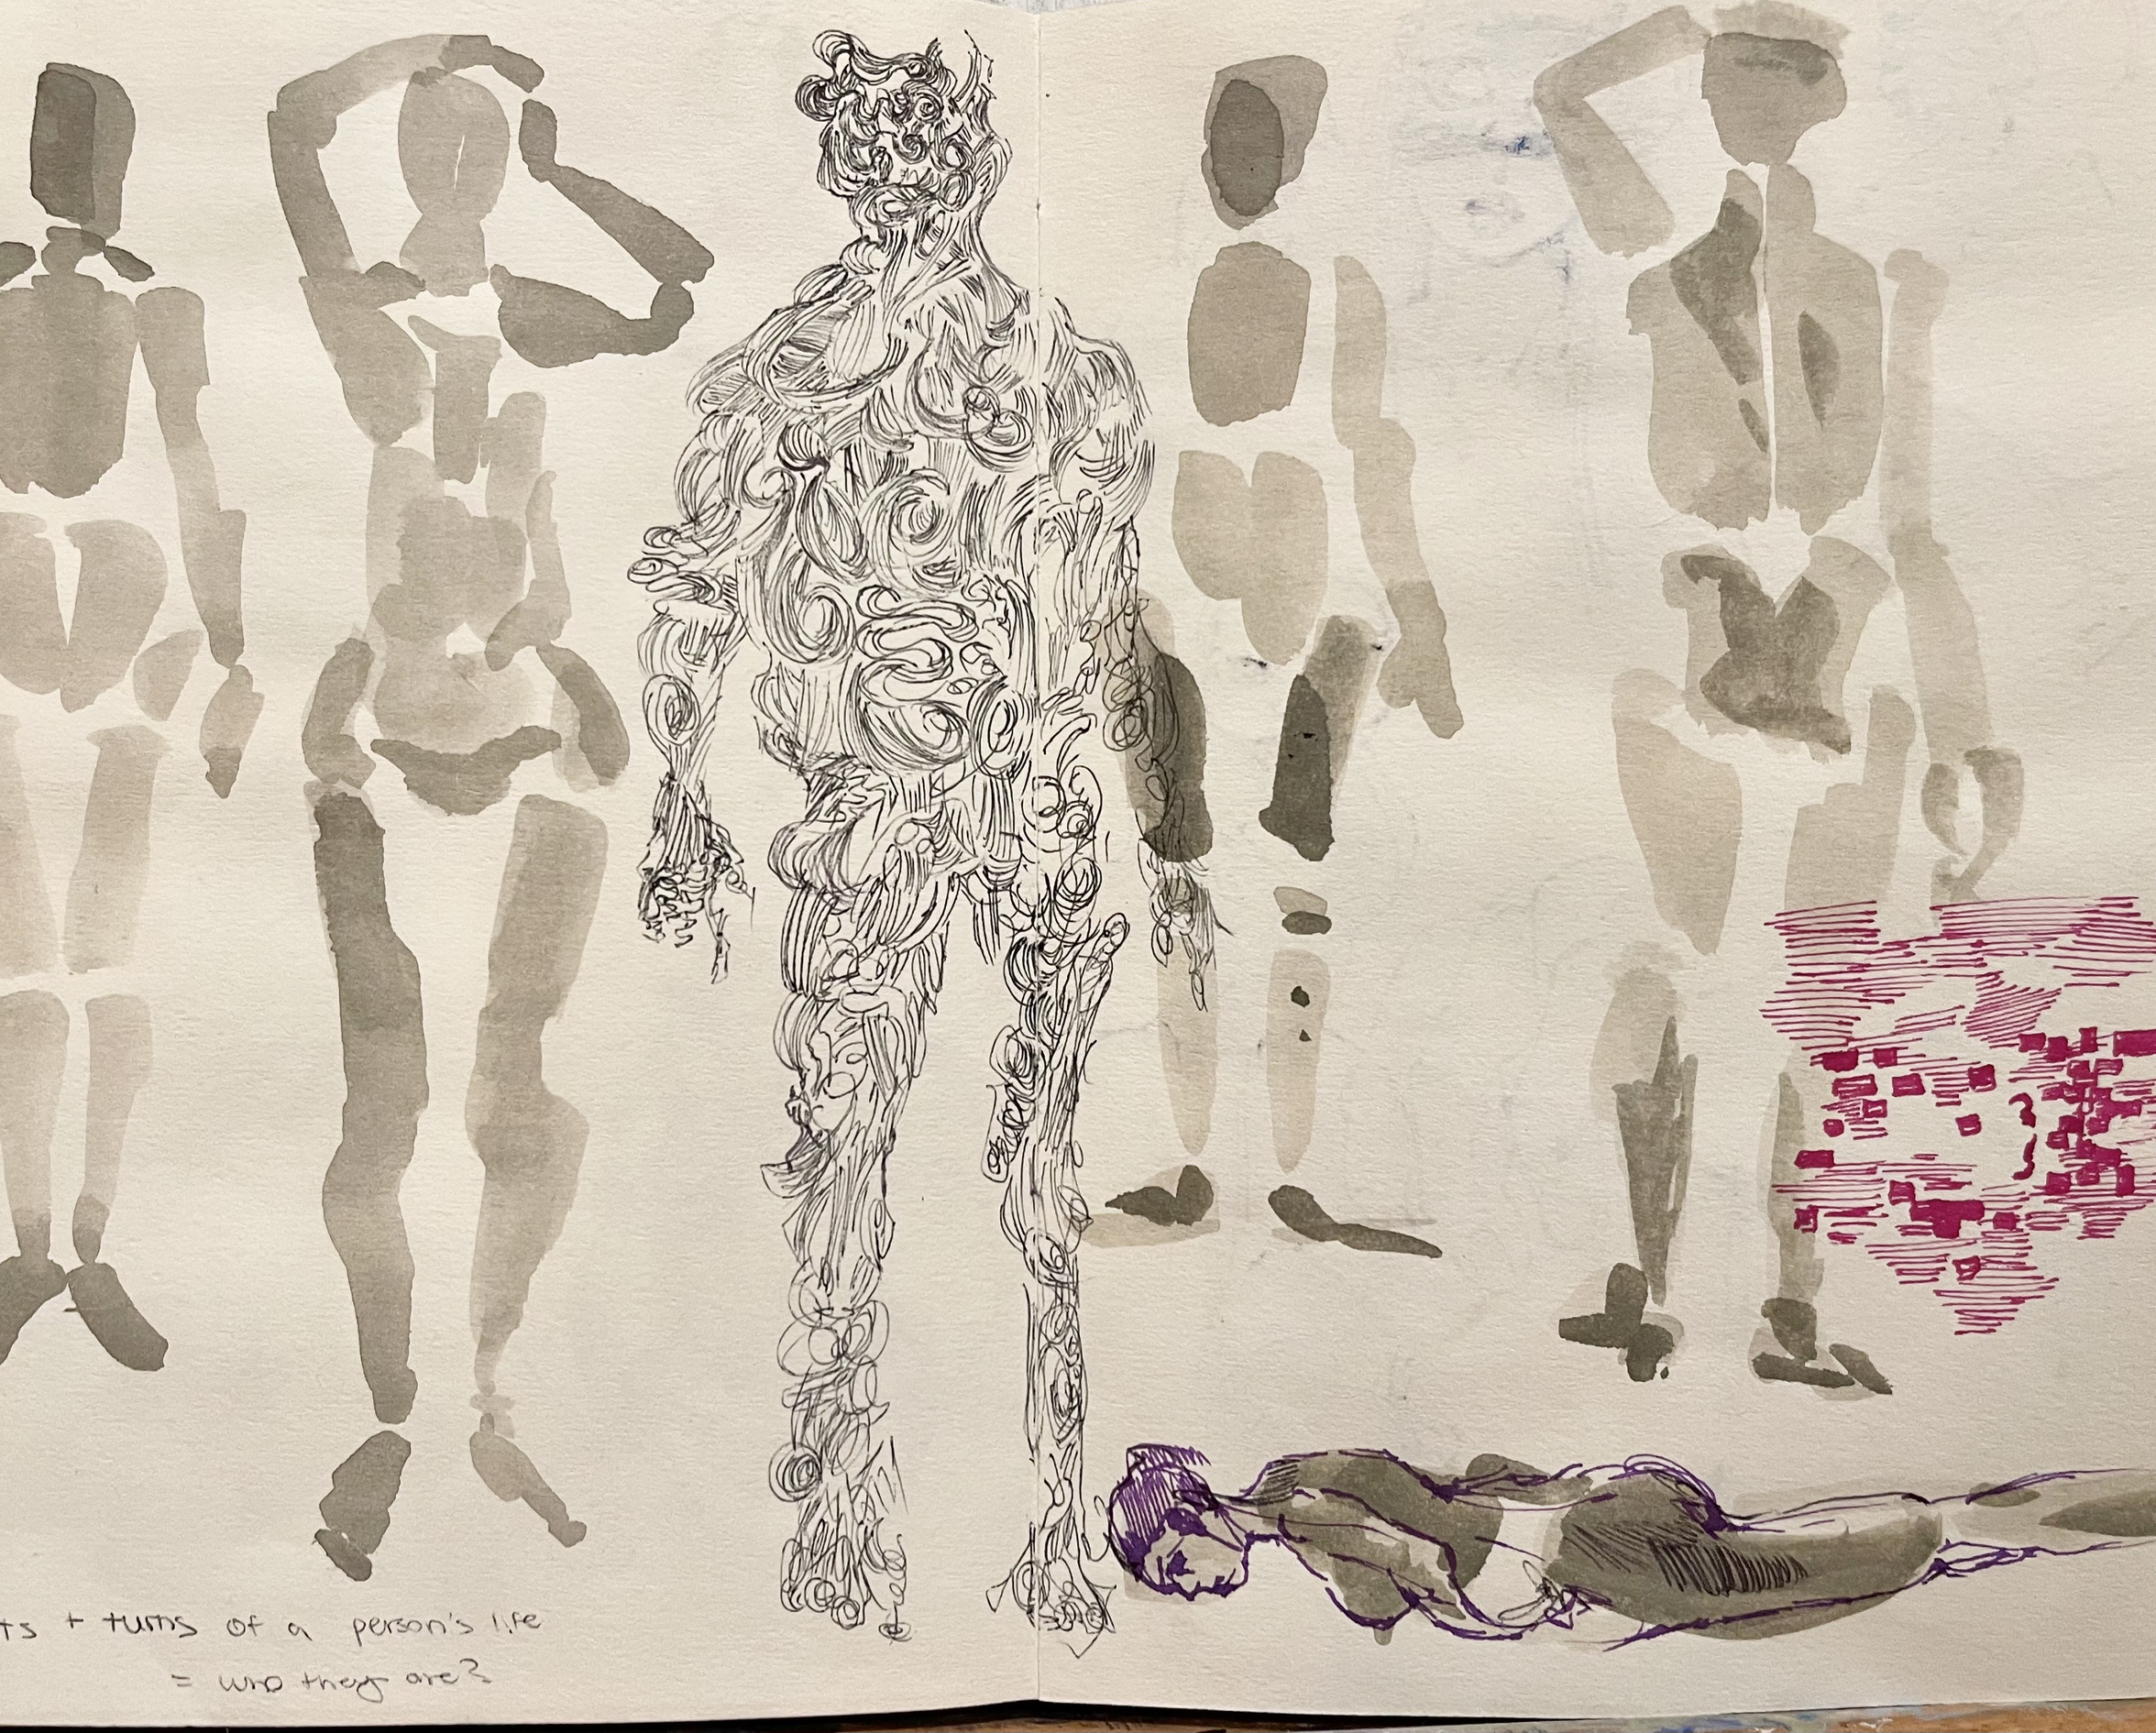 ts + turns of a person's life
= who they are?